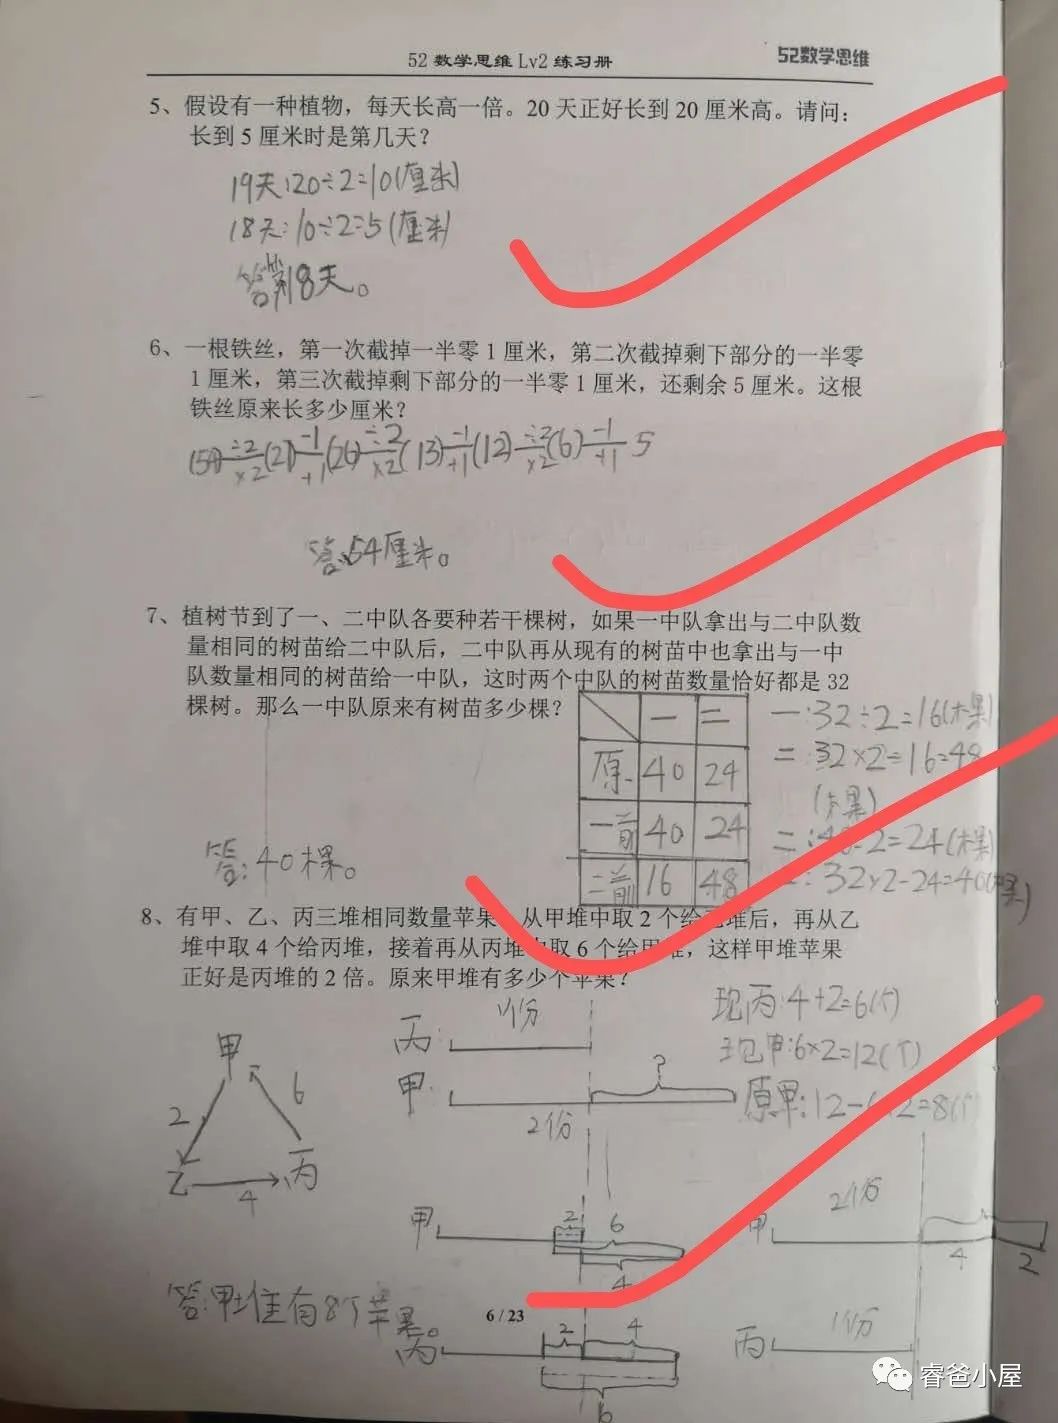 52数学思维Lv2练习册
52数学思维
5、假设有一种植物，每天长高一倍。20天正好长到20厘米高。请问：
长到5厘米时是第几天？
19天:20÷2=10(厘米)
18天:10÷2=5(厘米)
答:第18天。
6、一根铁丝，第一次截掉一半零1厘米，第二次截掉剩下部分的一半零
1厘米，第三次截掉剩下部分的一半零1厘米，还剩余5厘米。这根
铁丝原来长多少厘米？
答:54厘米。
7、植树节到了一、二中队各要种若干棵树，如果一中队拿出与二中队数
量相同的树苗给二中队后，二中队再从现有的树苗中也拿出与一中
队数量相同的树苗给一中队，这时两个中队的树苗数量恰好都是32
棵树。那么一中队原来有树苗多少棵？
一 二
原 40 24
一前 40 24
二前 16 48
一:32÷2=16(棵)
二:32×2-16=48
(棵)
二:48÷2=24(棵)
32×2-24=40(棵)
答:40棵。
8、有甲、乙、丙三堆相同数量苹果，从甲堆中取2个给乙堆后，再从乙
堆中取4个给丙堆，接着再从丙堆中取6个给甲堆，这样甲堆苹果
正好是丙堆的2倍。原来甲堆有多少个苹果？
甲
2
6
乙
4
丙
丙: 1份
甲: ?
2份
现丙:4+2=6(个)
现甲:6×2=12(个)
原甲:12-6+2=8(个)
甲 2 6
4
甲 2份 4 2
答:甲堆有8个苹果。
6 / 23
丙 2 4
6
丙 1份
睿爸小屋